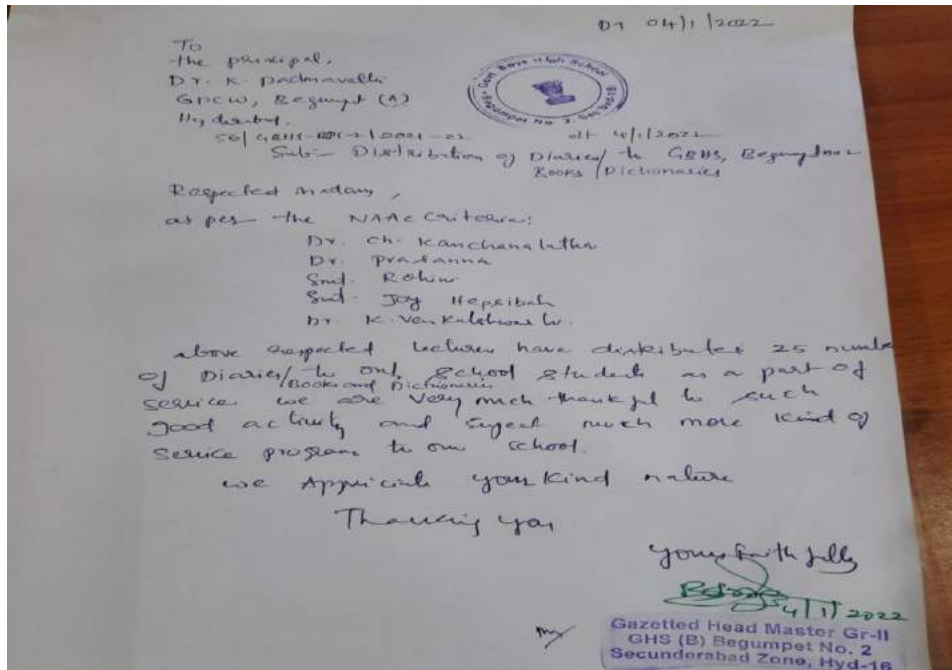 Dt 04/1/2022
To
the principal,
Dr. K. Padmavathi
GDCW, Begumpet (A)
Hyderabad.
Govt. Boys High School
Begumpet No. 2, Sec
56/GBHS-BPT-2/2021-22 dt 4/1/2022
Sub:- Distribution of Diaries/ to GBHS, Begumpet no2
Books/Dictionaries
Respected madam,
as per the NAAC Criteria:
Dr. Ch. Kanchanalatha
Dr. Prasanna
Smt. Rohini
Smt. Joy Hepsibah
Dr. K. Venkateshwarlu.
above respected lecturers have distributed 25 number
of Diaries/ to our school students as a part of
Books and Dictionaries
service. we are very much thankful to such
good activity and much more kind of
service program to our school.
we Appriciate your kind nature
Thanking you
yours faithfully
4/1/2022
Gazetted Head Master Gr-II
GHS (B) Begumpet No. 2
Secunderabad Zone, Hyd-16